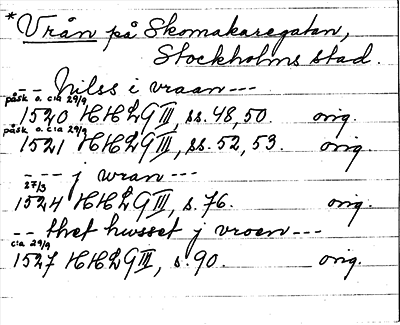 *Vrån på Skomakaregatan,
Stockholms stad.
-- Nilss i vraan ---
påsk o. c:a 29/9
1520 HHLG III, ss. 48, 50. orig.
påsk o. c:a 29/9
1521 HHLG III, ss. 52, 53. orig.
--- j wran ---
27/3
1524 HHLG III, s. 76. orig.
-- thet hwsset j vroen ---
c:a 29/9
1527 HHLG III, s. 90. orig.